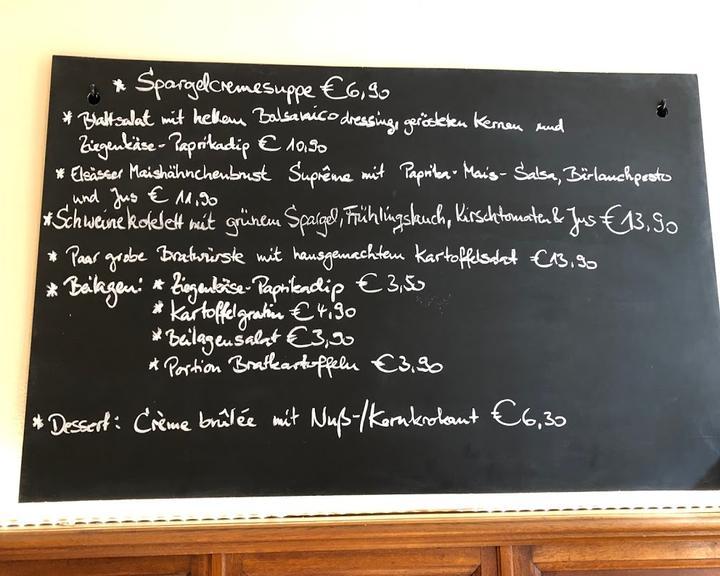 * Spargelcremesuppe € 6,90
* Blattsalat mit hellem Balsamicodressing, gerösteten Kernen und
Ziegenkäse-Paprikadip € 10,90
* Elsässer Maishähnchenbrust Suprême mit Paprika-Mais-Salsa, Bärlauchpesto
und Jus € 11,90
* Schweinekotelett mit grünem Spargel, Frühlingslauch, Kirschtomaten & Jus € 13,90
* Paar grobe Bratwürste mit hausgemachtem Kartoffelsalat € 13,90
* Beilagen: * Ziegenkäse-Paprikadip € 3,50
* Kartoffelgratin € 4,90
* Beilagensalat € 3,90
* Portion Bratkartoffeln € 3,90
* Dessert: Crème brûlée mit Nuß-/Kernkrokant € 6,30